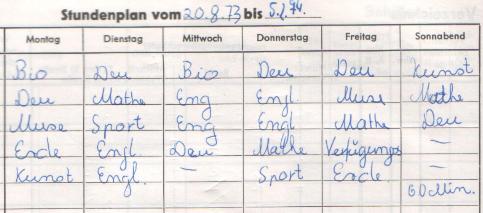 Stundenplan vom 20.8.73 bis 5.1.74.
Montag Dienstag Mittwoch Donnerstag Freitag Sonnabend
Bio Deu Bio Deu Deu Kunst
Deu Mathe Eng Engl. Muse Mathe
Muse Sport Eng Engl Mathe Deu
Erde Engl Deu Mathe Verfügungs —
Kunst Engl. — Sport Erde —
60 Min.